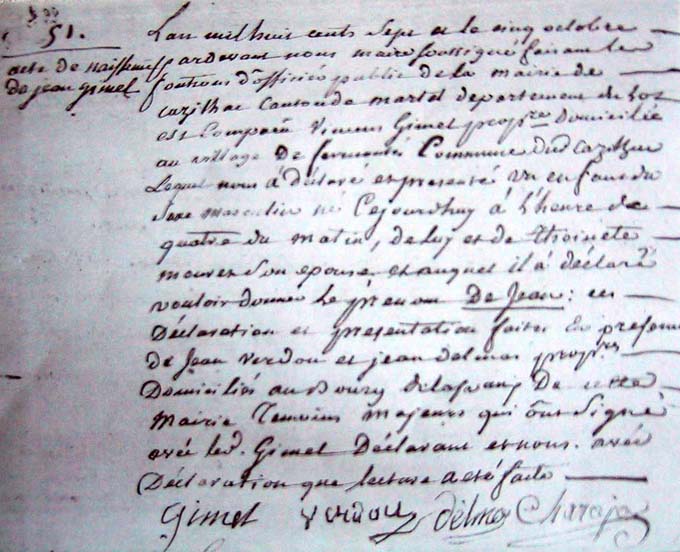 51.
acte de naissence
de jean gimel
L'an mil huit cents sept et le cinq octobre
pardevant nous maire soussigné faisant les
fontions d'officier public de la mairie de
cazilhac canton de martel departement du Lot
est Comparu Gimel propre. Domicilié
au village De Commune dud. cazilhac
Lequel nous à déclaré et presenté un enfant du
sexe masculin né Cejourdhuy à L'heure de
quatre du matin, de luy et de thoinete
son epouse et auquel il à déclaré
vouloir donner Le prenom De Jean : ces
Déclaration et presentation faites En presence
de Jean Verdou et jean delmas propres.
Domiciliés au Bourg De cette
Mairie Temoins majeurs qui ont Signé
avec led. Gimel Déclarant et nous. avec
Déclaration que lecture a eté faite
Gimel Verdou Delmas